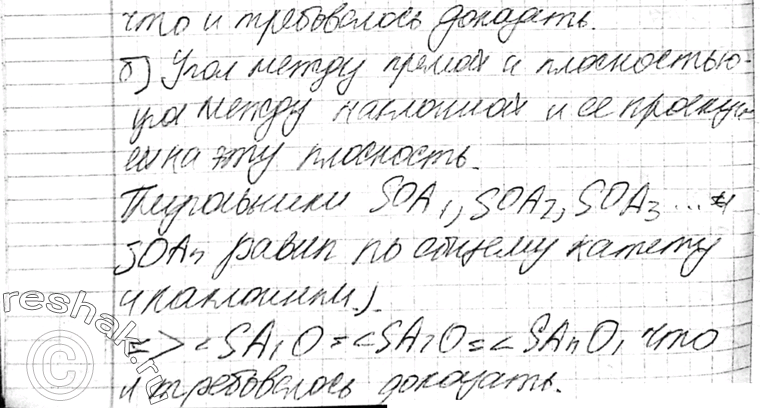 что и требовалось доказать.
б) Угол между прямой и плоскостью-
угол между наклонной и её проекци-
ей на эту плоскость.
Треугольники SOA₁, SOA₂, SOA₃ ... и
SOAn равны по общему катету
и наклонным).
=> <SA₁O = <SA₂O = <SAnO, что
и требовалось доказать.
reshak.ru